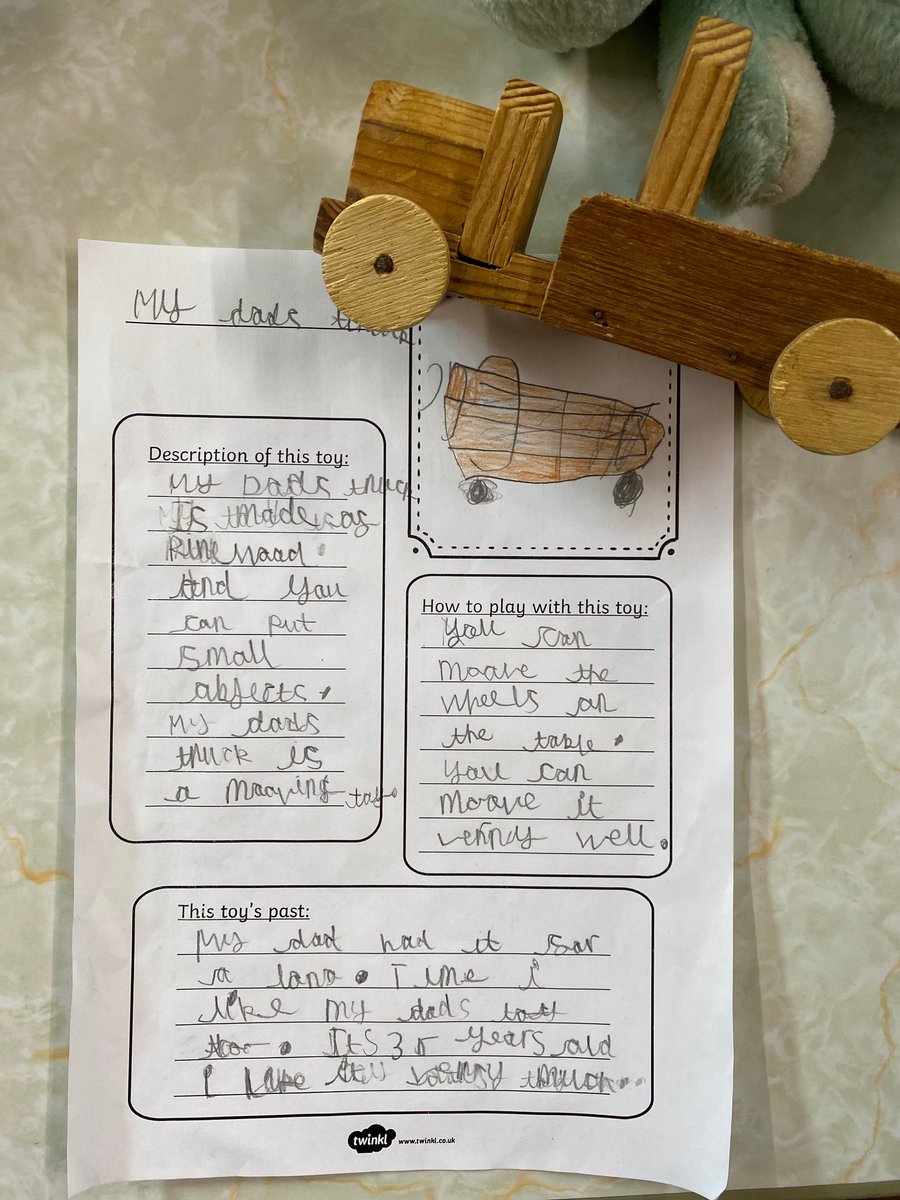 My dads
Description of this toy:
My Dads truck
Is made
Wood
And You
can put
small
objects.
My dads
truck is
a mooving toy.
How to play with this toy:
You can
moove the
wheels on
the table.
You can
moove it
very well.
This toy's past:
My dad had it for
a long. Time i
like my dads
. Its 35 years old
I like
twinkl www.twinkl.co.uk